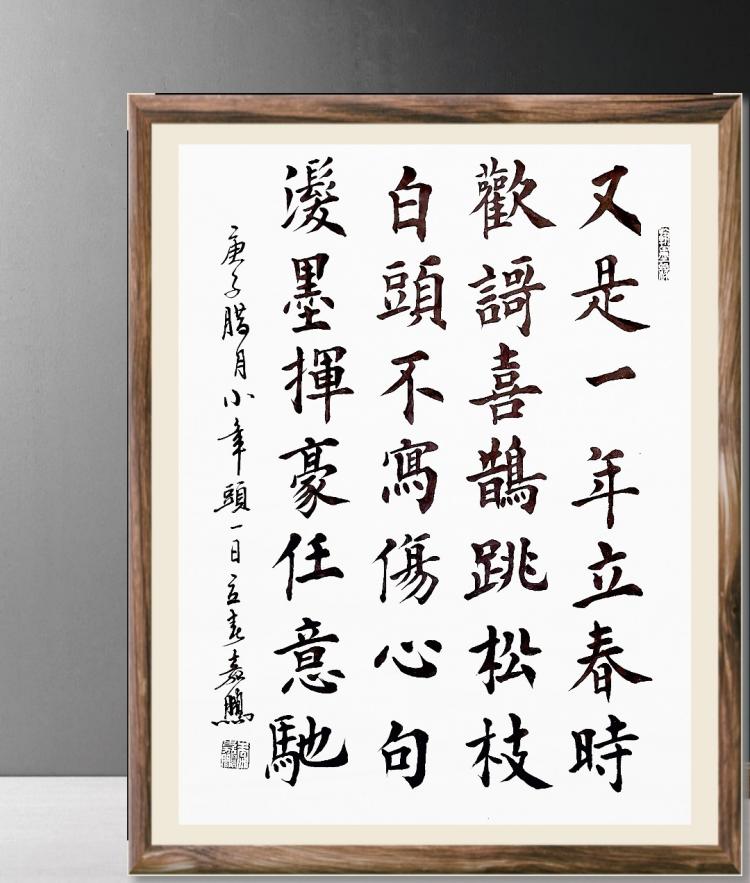 又是一年立春時
歡謌喜鵲跳松枝
白頭不寫傷心句
潑墨揮豪任意馳
庚子腊月小年頭一日立春嘉鵬